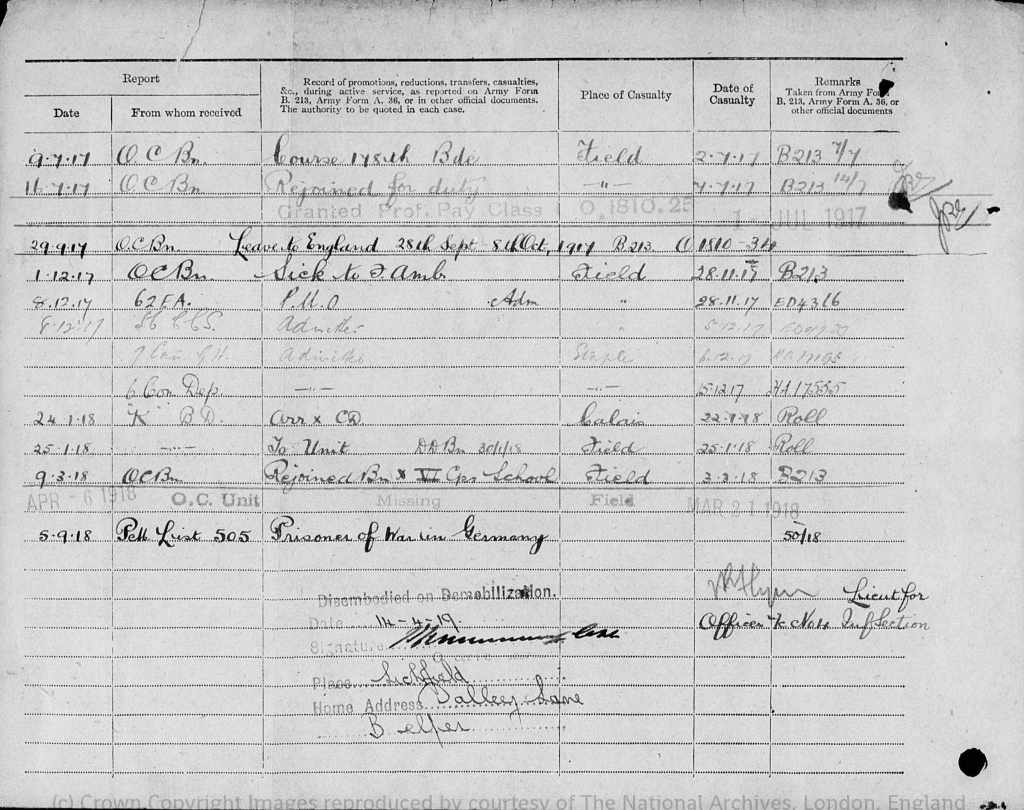 Report
Record of promotions, reductions, transfers, casualties,
&c., during active service, as reported on Army Form
B. 213, Army Form A. 36, or in other official documents.
The authority to be quoted in each case.
Place of Casualty
Date of
Casualty
Remarks
Taken from Army Form
B. 213, Army Form A. 36, or
other official documents
Date From whom received
9.7.17 O C Bn. Course 178th Bde Field 2.7.17 B213 7/7
11.7.17 O C Bn Rejoined for duty —"— 7.7.17 B213 14/7
Granted Prof. Pay Class O.1810.25 1 JUL 1917
29.9.17 O.C.Bn Leave to England 28th Sept 8th Oct, 1917 B213 O 1810-34
1.12.17 O C Bn Sick to F. Amb. Field 28.11.17 B213
8.12.17 62 F.A. P.U.O Adm " 28.11.17 ED4316
8.12.17 C.C.S. Admitted " 5.12.17
7 Can G.H. Admitted Etaples 6.12.17
6 Con Dep. —"— —"— 15.12.17 HA17555
24.1.18 "K" B.D. Arr x CD Calais 22.1.18 Roll
25.1.18 —"— To Unit DDBn 30/1/18 Field 25.1.18 Roll
9.3.18 OCBn Rejoined Bn x VI Cps School Field 3.3.18 B213
APR -6 1918 O.C. Unit Missing Field MAR 21 1918
5.9.18 List 505 Prisoner of War in Germany 50/18
Disembodied on Demobilization.
Lieut for
Date 14-4-19
Officer i/c No 4 Inf Section
Signature
Place Lichfield
Home Address Lane
Belper
(c) Crown Copyright Images reproduced by courtesy of The National Archives, London, England.